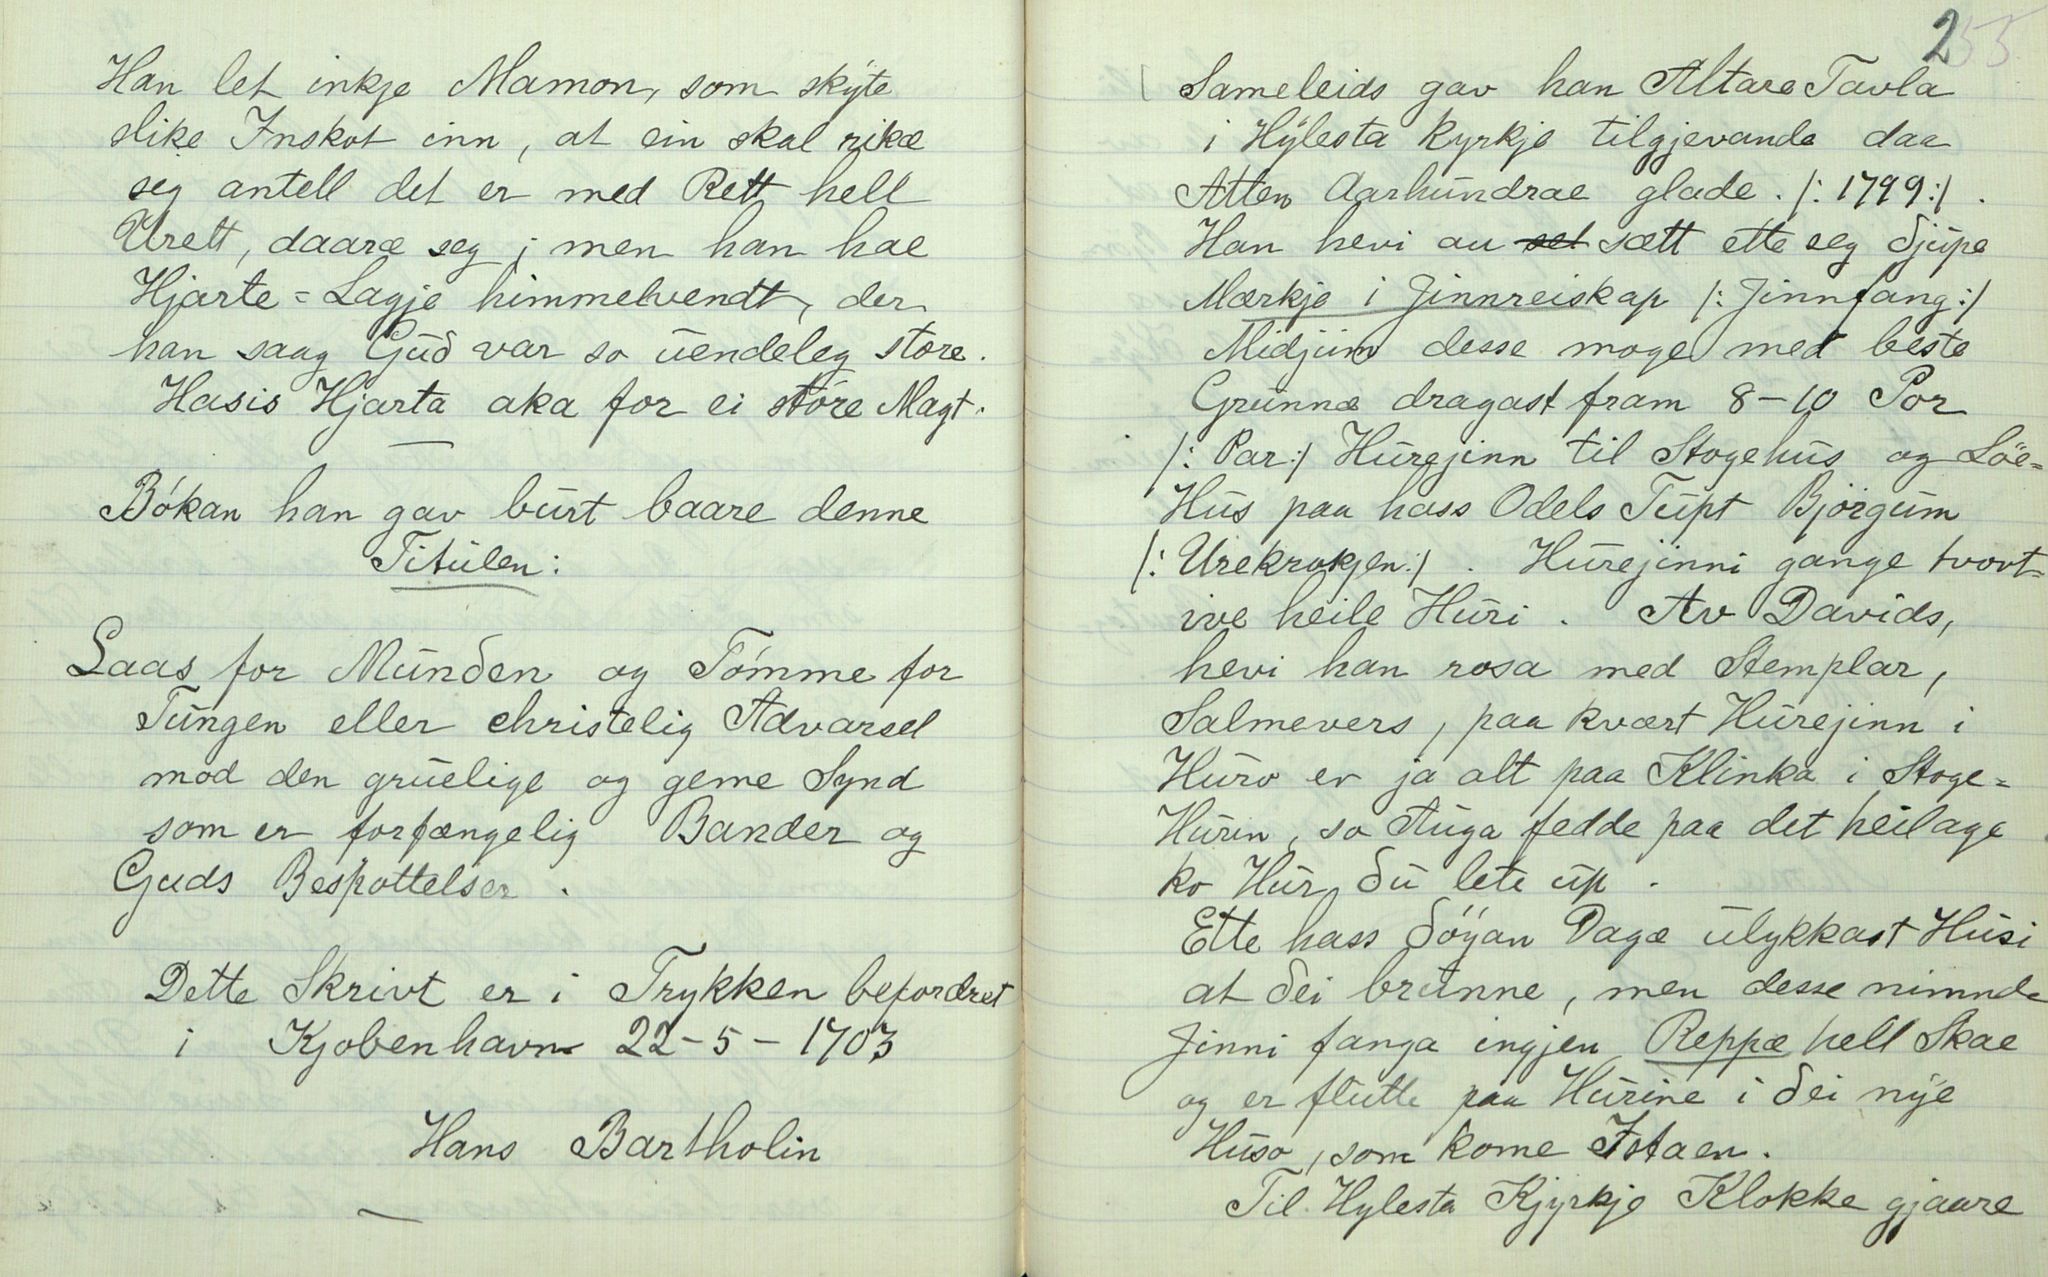 Han let inkje Mamon, som skyte
slike Inskot inn, at ein skal rikæ
seg antell det er med Rett hell
Urett, daaræ seg; men han hae
Hjarte=Lagje himmelvendt, der
han saag Guð var so uendeleg store.
Hasis Hjarta aka for ei støre Magt.
Bókan han gav burt baare denne
Titulen:
Laas for Munðen og Tómme for
Tungen eller christelig Advarsel
mod den gruelige og geme Synd
som er forfængelig Bander og
Guds Bespottelser.
Dette Skrivt er i Trykken befordret
i Kjobenhavn 22-5-1703
Hans Bartholin
255
Sameleids gav han Altare Tavla
i Hylesta Kyrkje tilgjevande daa
Atten Aarhundrae glade. /: 1799 :/.
Han hevi au set sætt ette seg djupe
Mærkje i Jinnreiskap /: Jinnfang :/
Midjum desse moge med beste
Grunnæ dragast fram 8-10 Por
/: Par :/ Hurejinn til Stogehus og Löe=
Hus paa hass Odels Tupt Bjørgum
/: Urekrokjen :/. Hurejinni gange tvort=
ive heile Huri. Av Davids,
hevi han rosa med Stemplar,
Salmevers, paa kvært Hurejinn i
Huro er ja alt paa Klinka i Stoge=
Hurin, so Auga fedde paa det heilage
ko Hur ðu lete up.
Ette hass ðöyan Dagæ ulykkast Husi
at ðei brunne, men desse nimnde
Jinni fanga ingjen Reppæ hell Skae
og er flutte paa Hurine i ðei nye
Huso, som kome Istaen.
Til Hylesta Kjyrkje Klokke gjaare